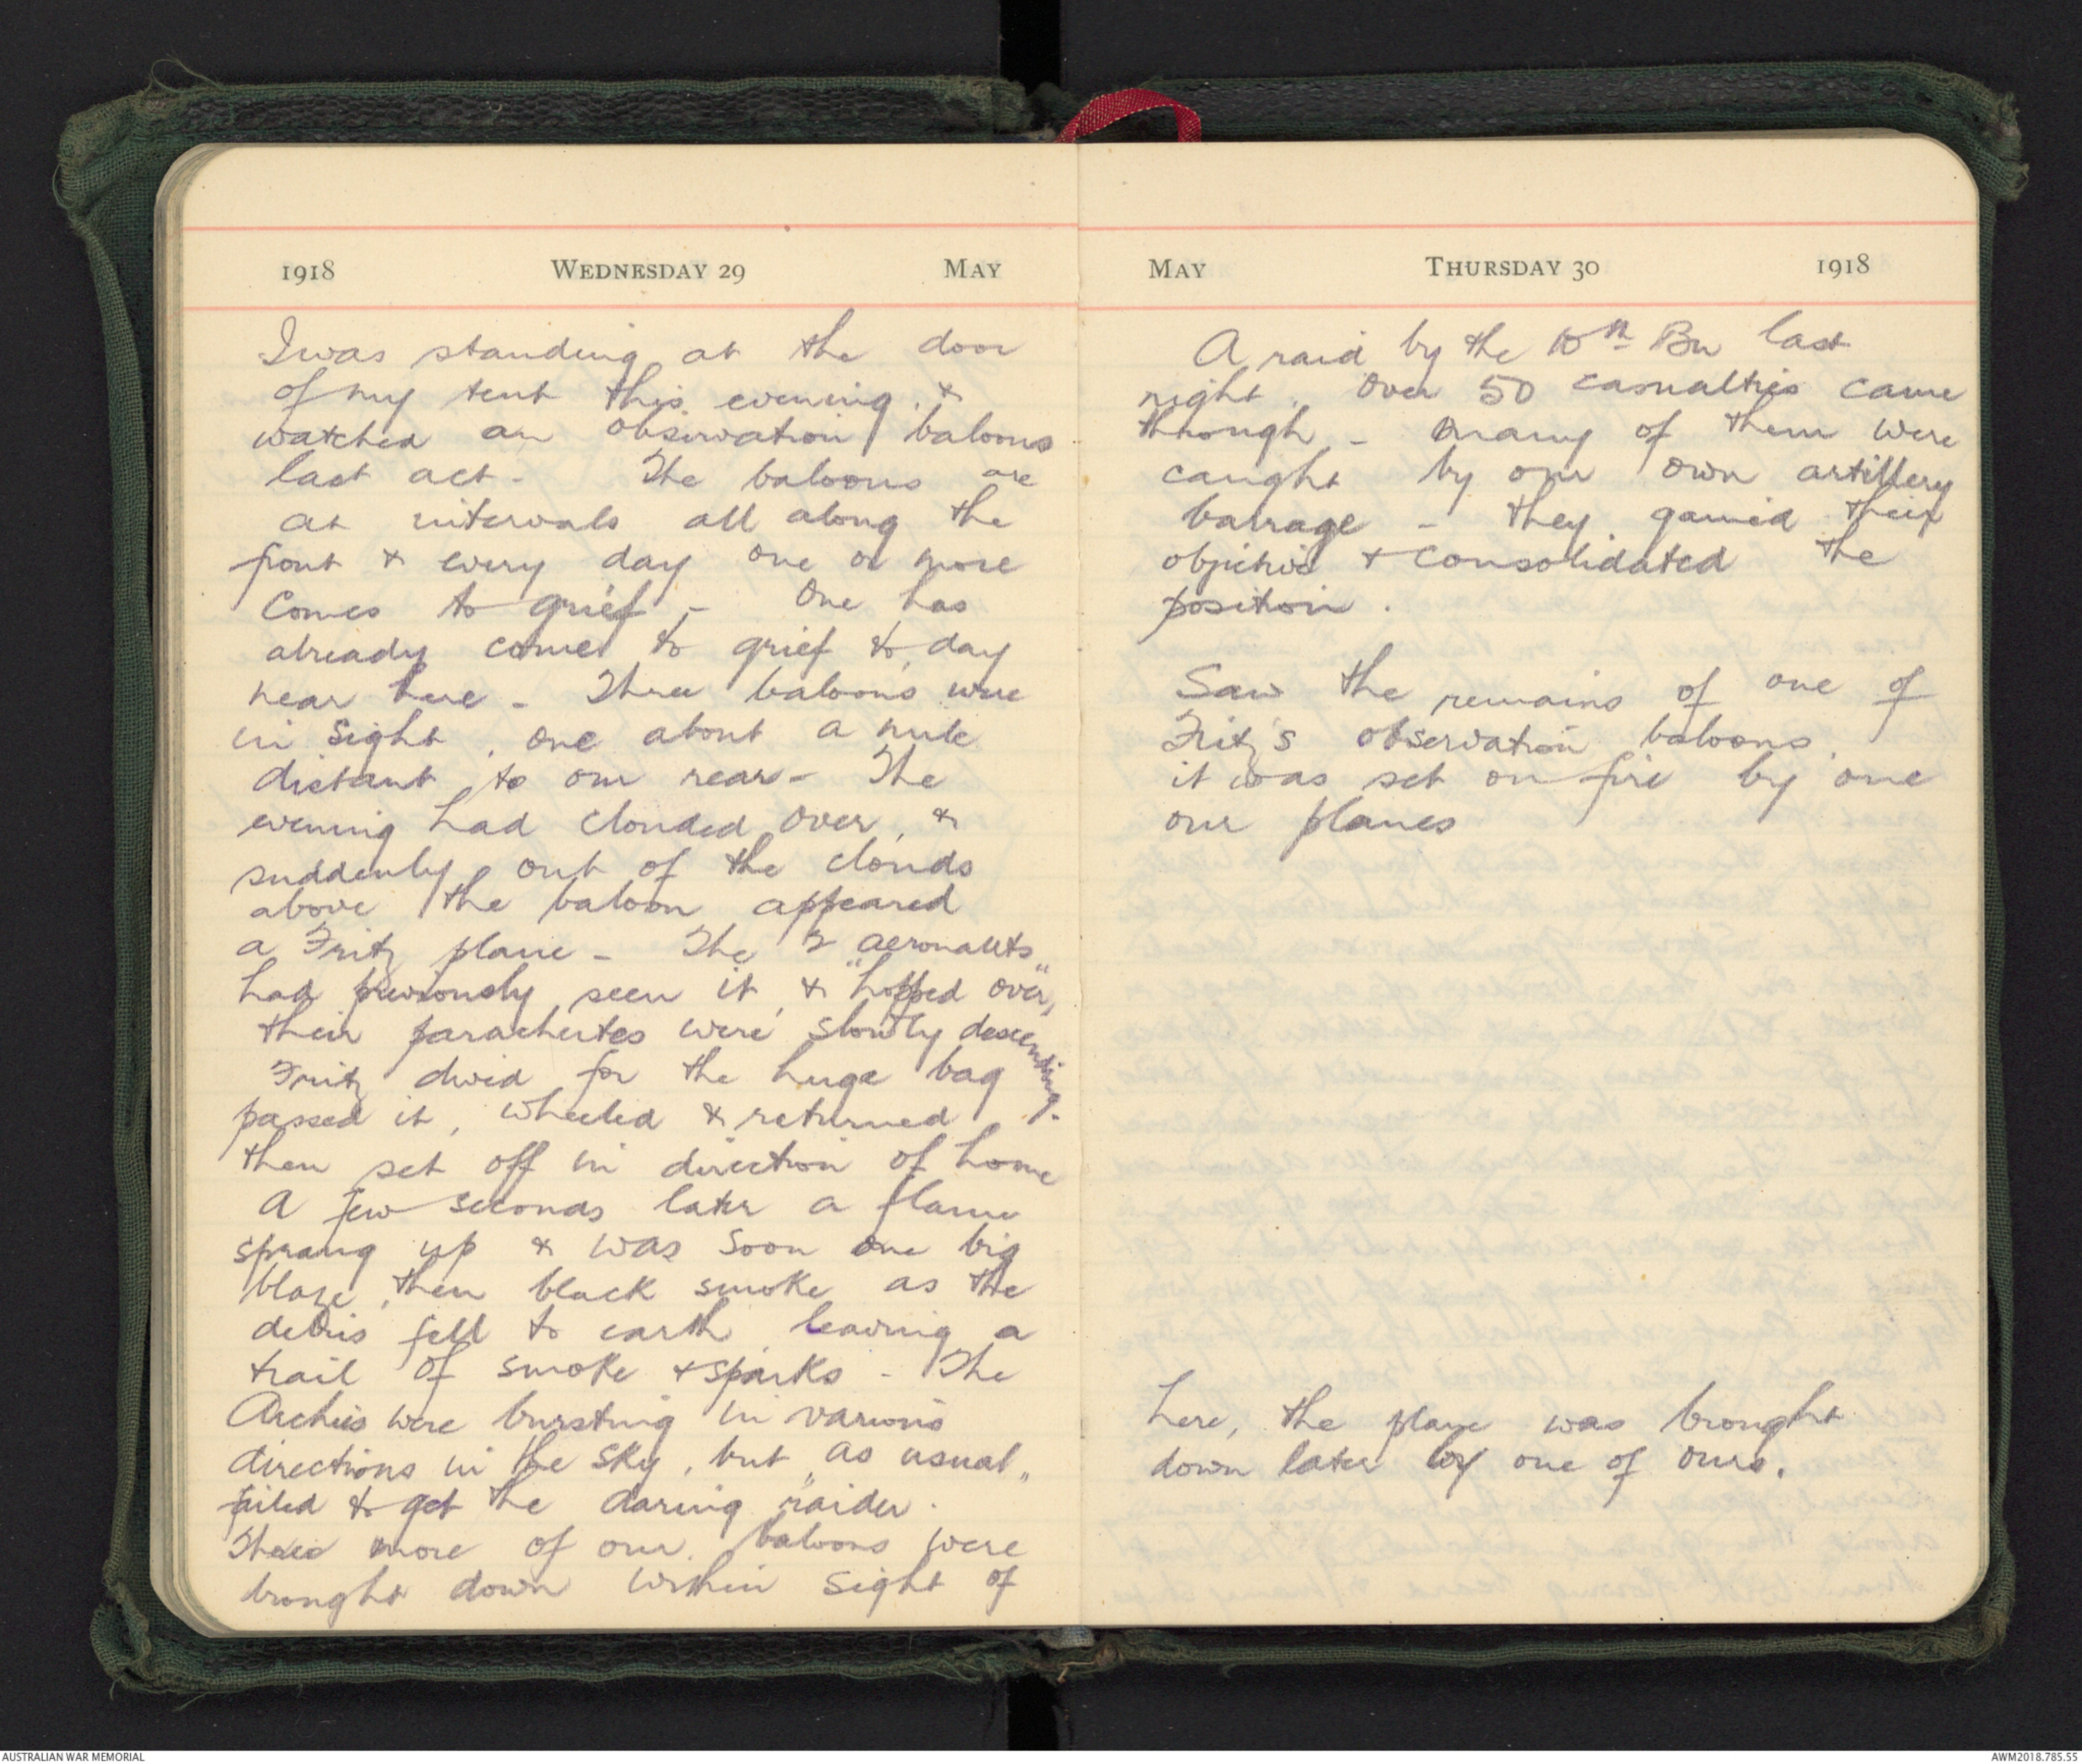 1918 WEDNESDAY 29 MAY
I was standing at the door
of my tent this evening, &
watched an observation baloons
last act - The baloons are
at intervals all along the
front & every day one or more
comes to grief, - One has
already come to grief to day
near here - Three baloons were
in sight, one about a mile
distant to our rear - The
evening had clouded over, &
suddenly out of the clouds
above the baloon appeared
a Fritz plane - The 2 aeronauts
had previously seen it, & "hopped over",
their parachutes were slowly descending.
Fritz dived for the huge bag
passed it, wheeled & returned
then set off in direction of home
A few seconds later a flame
sprang up & was soon one big
blaze, then black smoke as the
debris fell to earth, leaving a
trail of smoke & sparks - The
Archies were bursting in various
directions in the sky, but "as usual"
failed to get the daring raider.
Three more of our baloons were
brought down within sight of
MAY THURSDAY 30 1918
A raid by the 10th Bn last
night. Over 50 casualties came
through - many of them were
caught by our own artillery
barrage - they gained their
objective & consolidated the
position.
Saw the remains of one of
Fritz's observation baloons,
it was set on fire by one
our planes
here, the plane was brought
down later by one of ours.
AUSTRALIAN WAR MEMORIAL
AWM2018.785.55